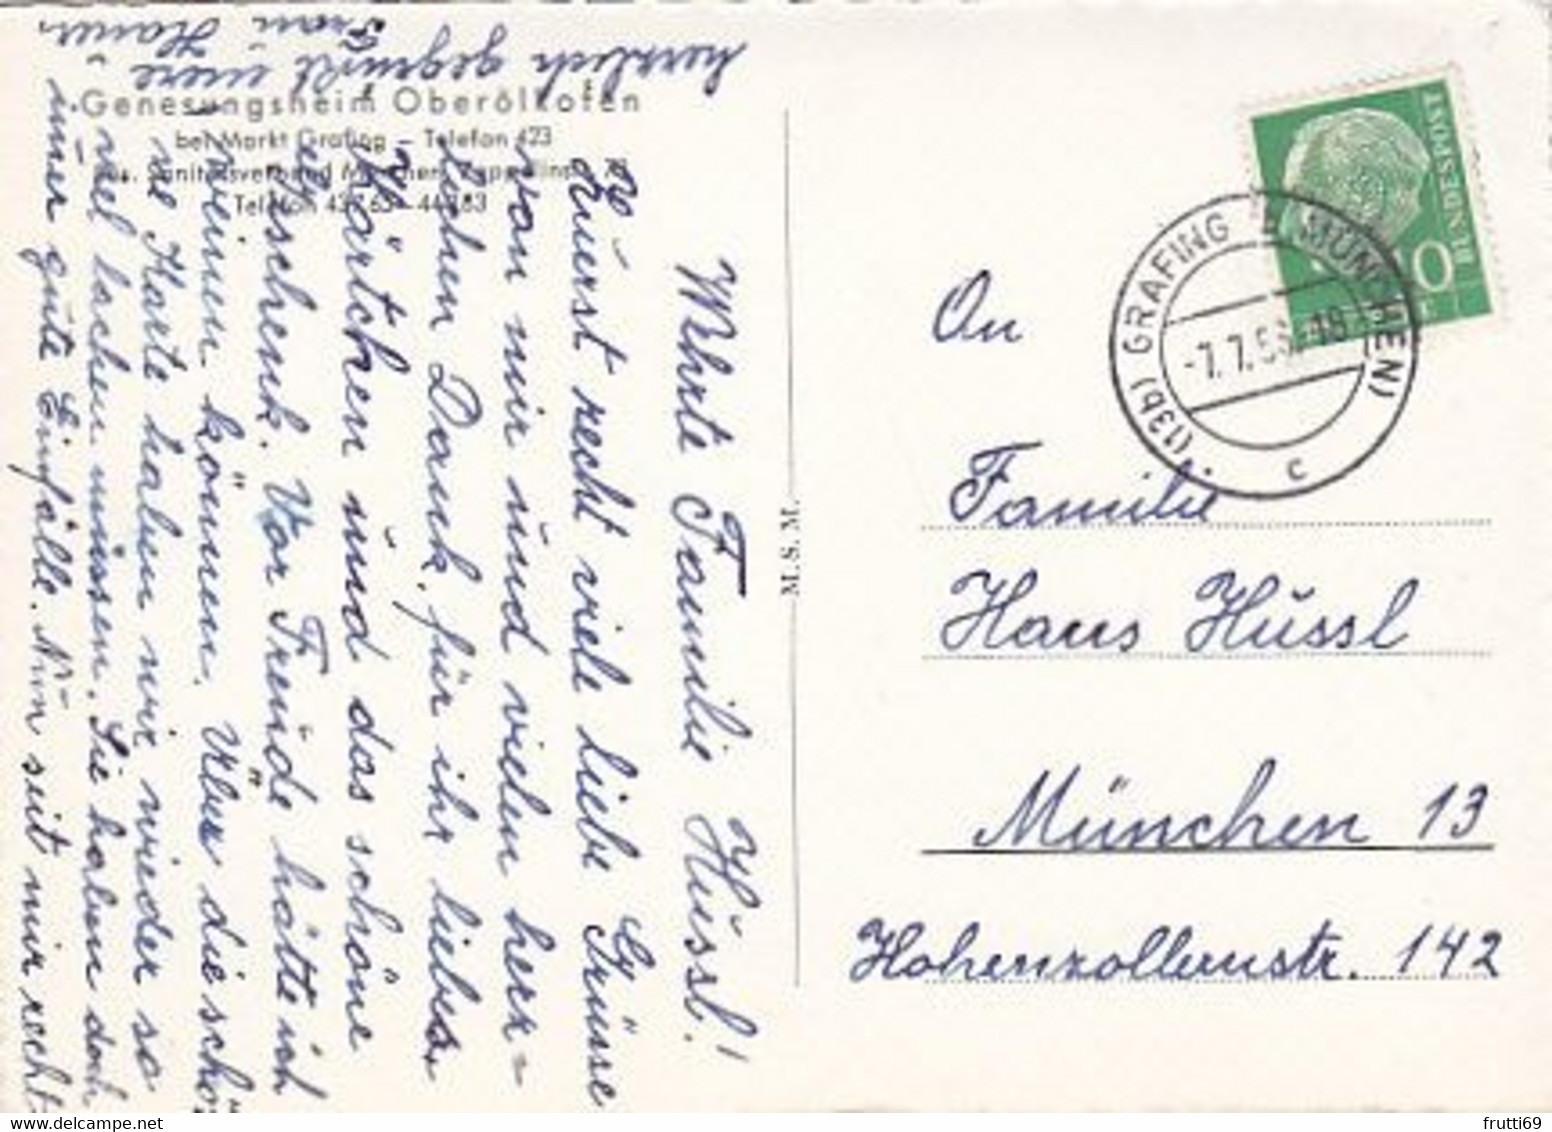 Genesungsheim Oberölkofen
bei Markt Grafing – Telefon 423
Werte Familie Hüssl!
Zuerst recht viele liebe Grüsse
von mir und vielen herz-
lichen Dank für ihr liebes
Kärtchen und das schöne
Geschenk. Vor Freude hätte ich
weinen können. Über die schö-
ne Karte haben wir wieder so
viel lachen müssen. Sie haben doch
imer gute Einfälle. Nun seit mir recht
herzlich gegrüßt
M.S.M.
BUNDESPOST
(13b) GRAFING b. (MÜNCHEN)
-7.7.5
c
An
Familie
Hans Hüssl
München 13
Hohenzollernstr. 142
frutti69